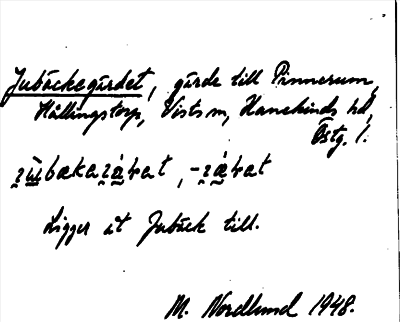 Jubäckegärdet, gärde till Pinnerum,
Hällingstorp, Vists sn, Hanekinds hd,
Östg. l.
Ligger åt Jubäck till.
M. Nordlund 1948.